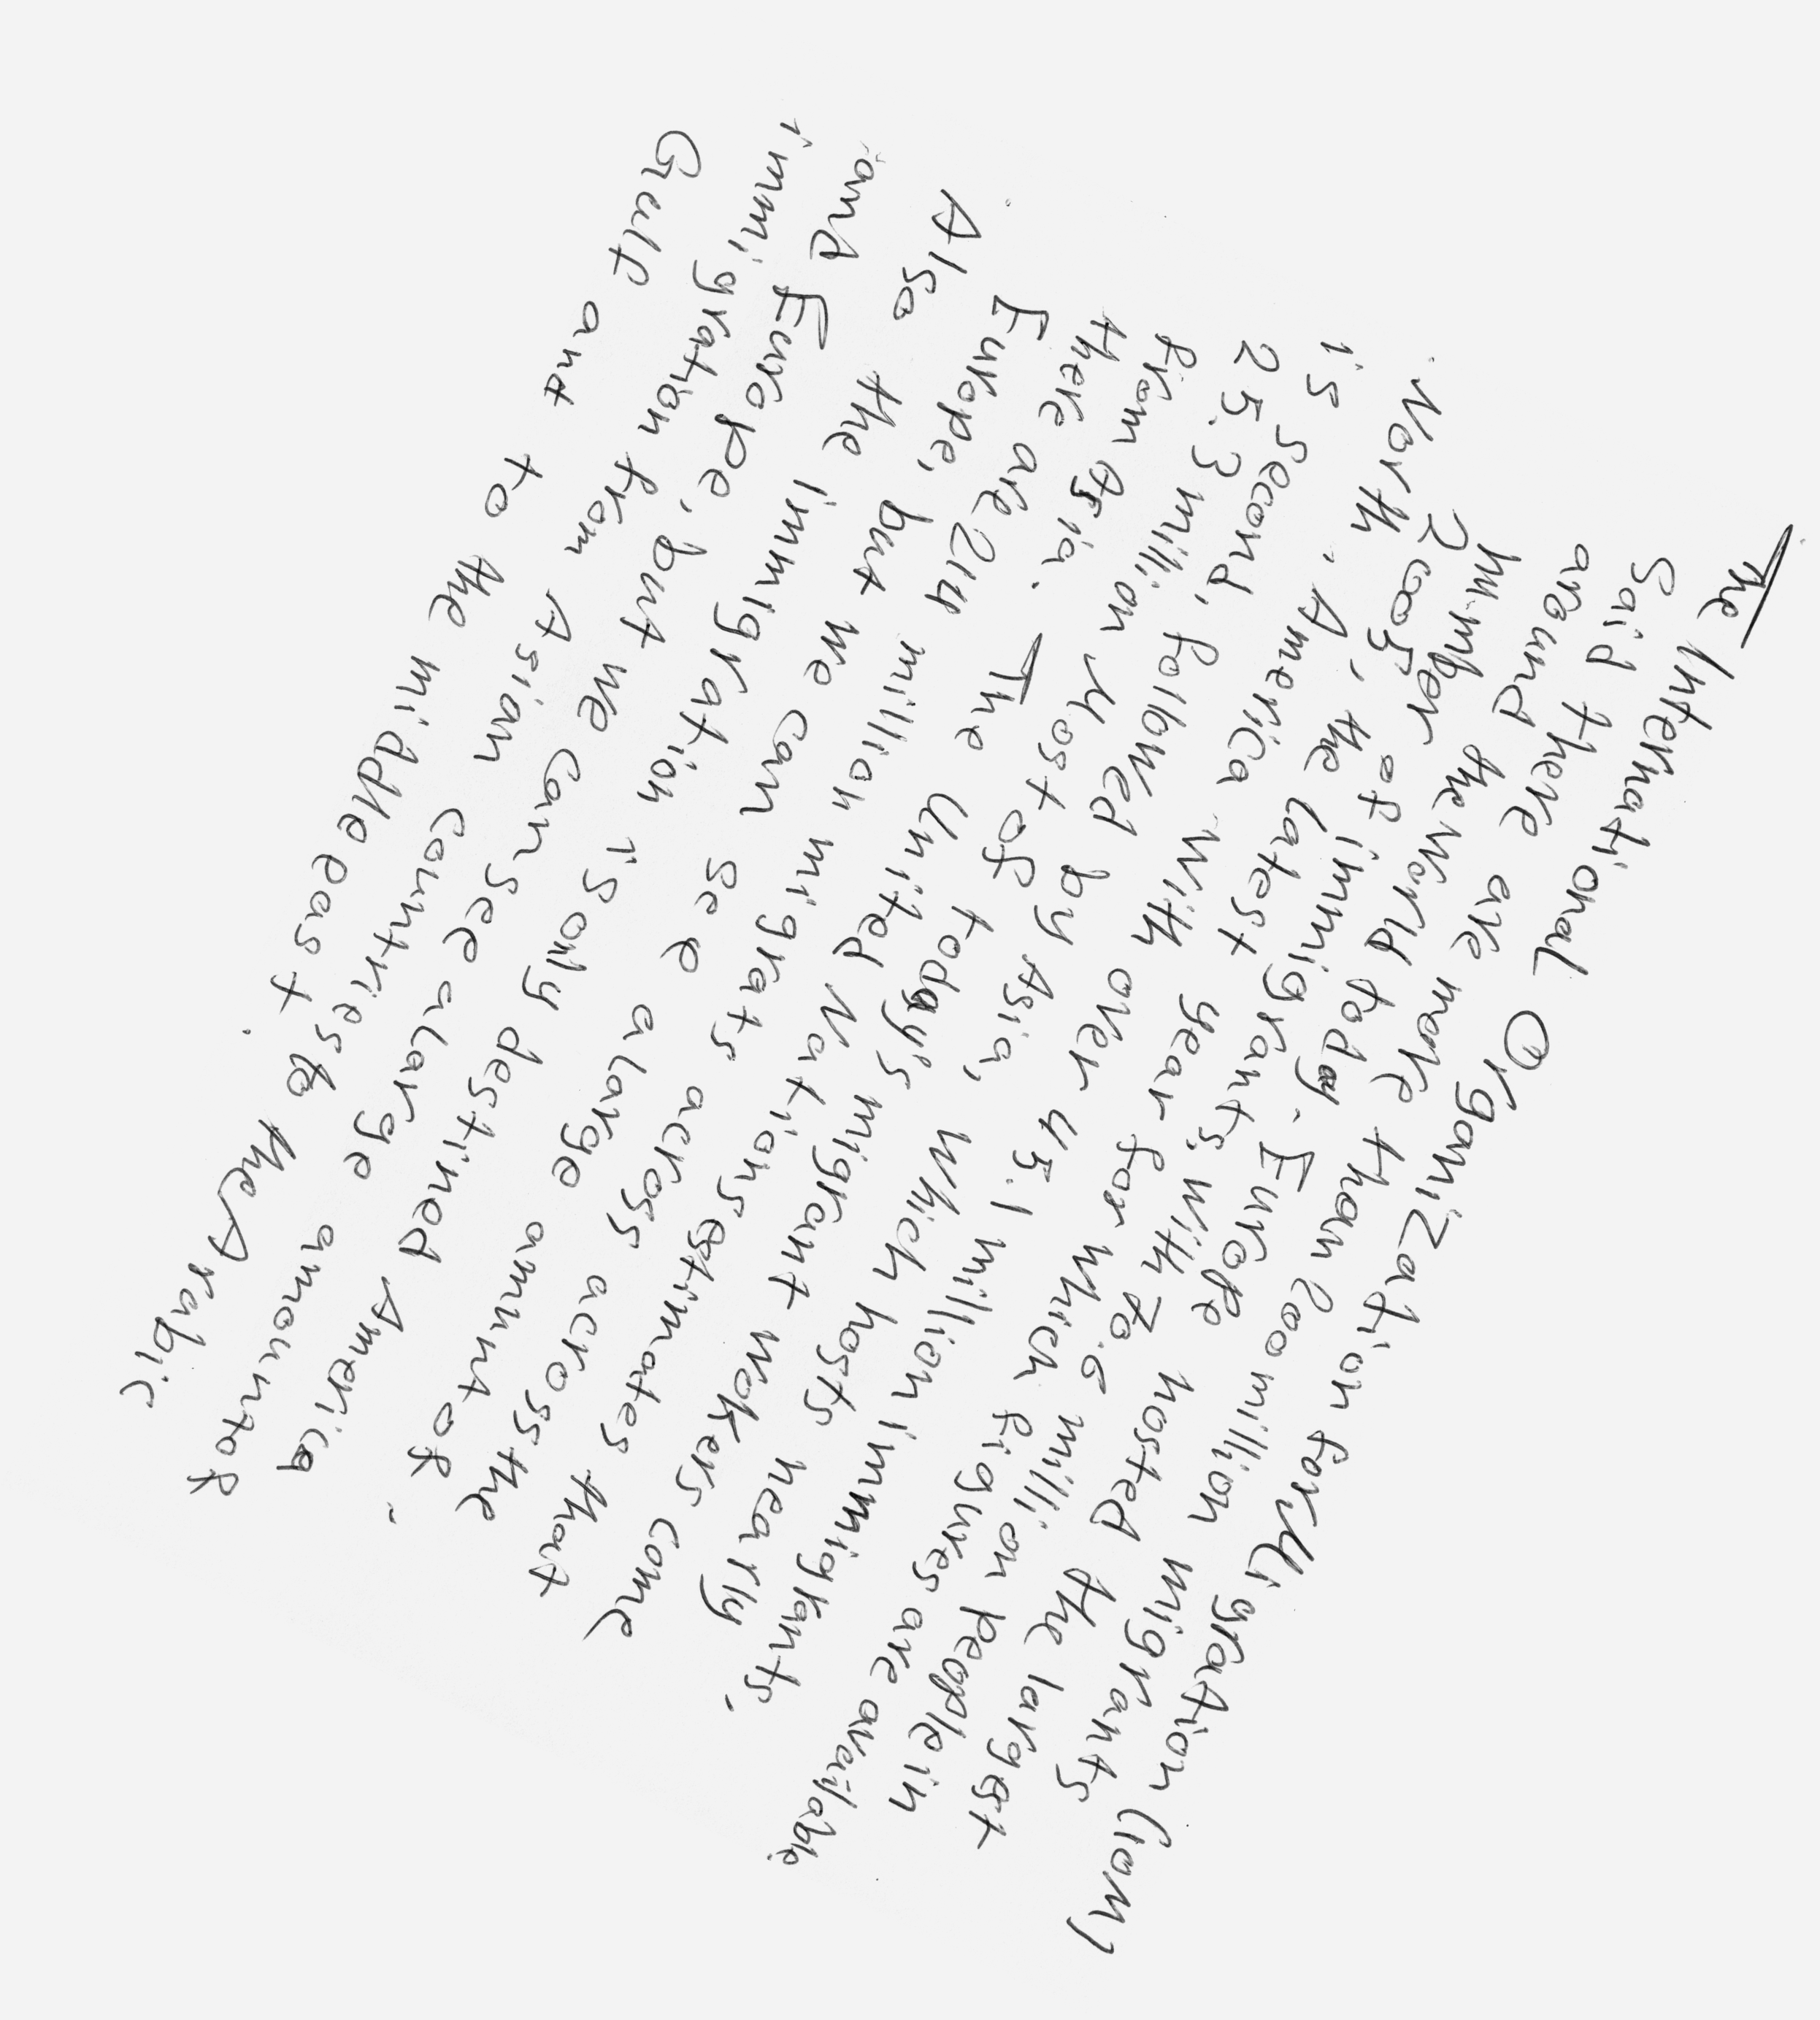 The International Organization for Migration (IOM)
Said there are more than 200 million migrants
around the world today. Europe hosted the largest
number of immigrants, with 70.6 million people in
2005, the latest year for which figures are available.
North America with over 45.1 million immigrants,
is second, followed by Asia, which hosts nearly
25.3 million Most of today's migrant wokers come
from Asia. The United Nations estimates that
there are 214 million migrats across across the
Europe, but we can see a large amnunt of.
Also the immigration is only destined America
and Europe, but we can see a large amount of
immigration from Asian countries to the Arabic
Gulf ant to the middle east.